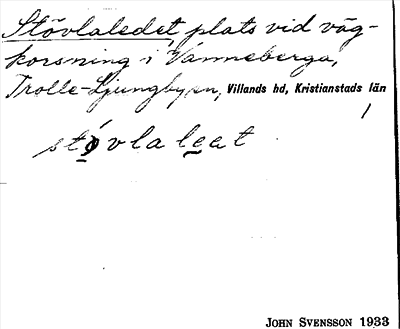 Stövlaledet, plats vid väg-
korsning i Vanneberga,
Trolle-Ljungby sn, Villands hd, Kristianstads län
1
stövlaleat
JOHN SVENSSON 1933